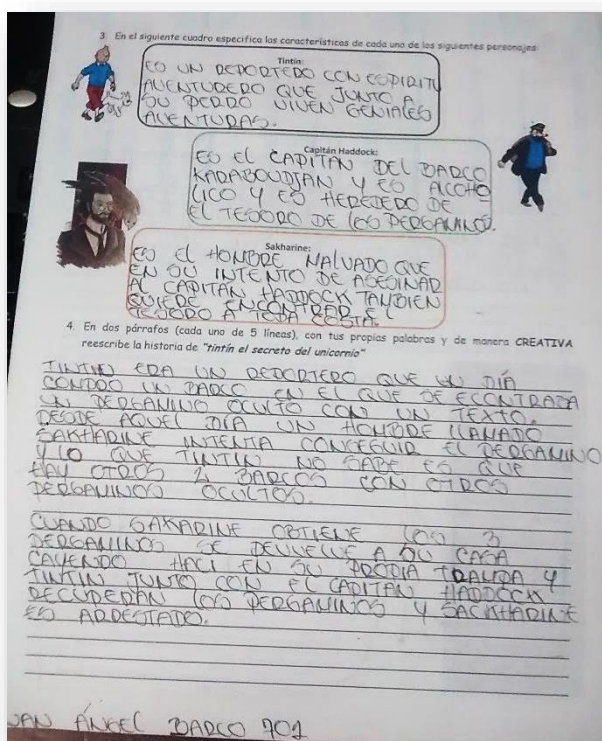 3. En el siguiente cuadro especifica las características de cada uno de los siguientes personajes:
Tintín:
ES UN REPORTERO CON ESPIRITU
AVENTURERO QUE JUNTO A
SU PERRO VIVEN GENIALES
AVENTURAS.
Capitán Haddock:
ES EL CAPITAN DEL BARCO
KARABOUDJAN Y ES ALCOHO
LICO Y ES HEREDERO DE
EL TESORO DE LOS PERGAMINOS.
Sakharine:
ES EL HOMBRE MALVADO QUE
EN SU INTENTO DE ASESINAR
AL CAPITAN HADDOCK TAMBIEN
QUIERE ENCONTRAR EL
TESORO A TODA COSTA.
4. En dos párrafos (cada uno de 5 líneas), con tus propias palabras y de manera CREATIVA
reescribe la historia de "tintín el secreto del unicornio"
TINTIN ERA UN REPORTERO QUE UN DÍA
COMPRO UN BARCO EN EL QUE SE ECONTRABA
UN PERGAMINO OCULTO CON UN TEXTO.
DESDE AQUEL DIA UN HOMBRE LLAMADO
SAKHARINE INTENTA CONSEGUIR EL PERGAMINO
Y LO QUE TINTIN NO SABE ES QUE
HAY OTROS 2 BARCOS CON OTROS
PERGAMINOS OCULTOS.
CUANDO SAKARINE OBTIENE LOS 3
PERGAMINOS SE DEVUELVE A SU CASA
CAYENDO HACI EN SU PROPIA TRAMPA Y
TINTIN JUNTO CON EL CAPITAN HADDOCK
RECUPERAN LOS PERGAMINOS Y SACKHARINE
ES ARRESTADO.
ÁNGEL BARCO 701